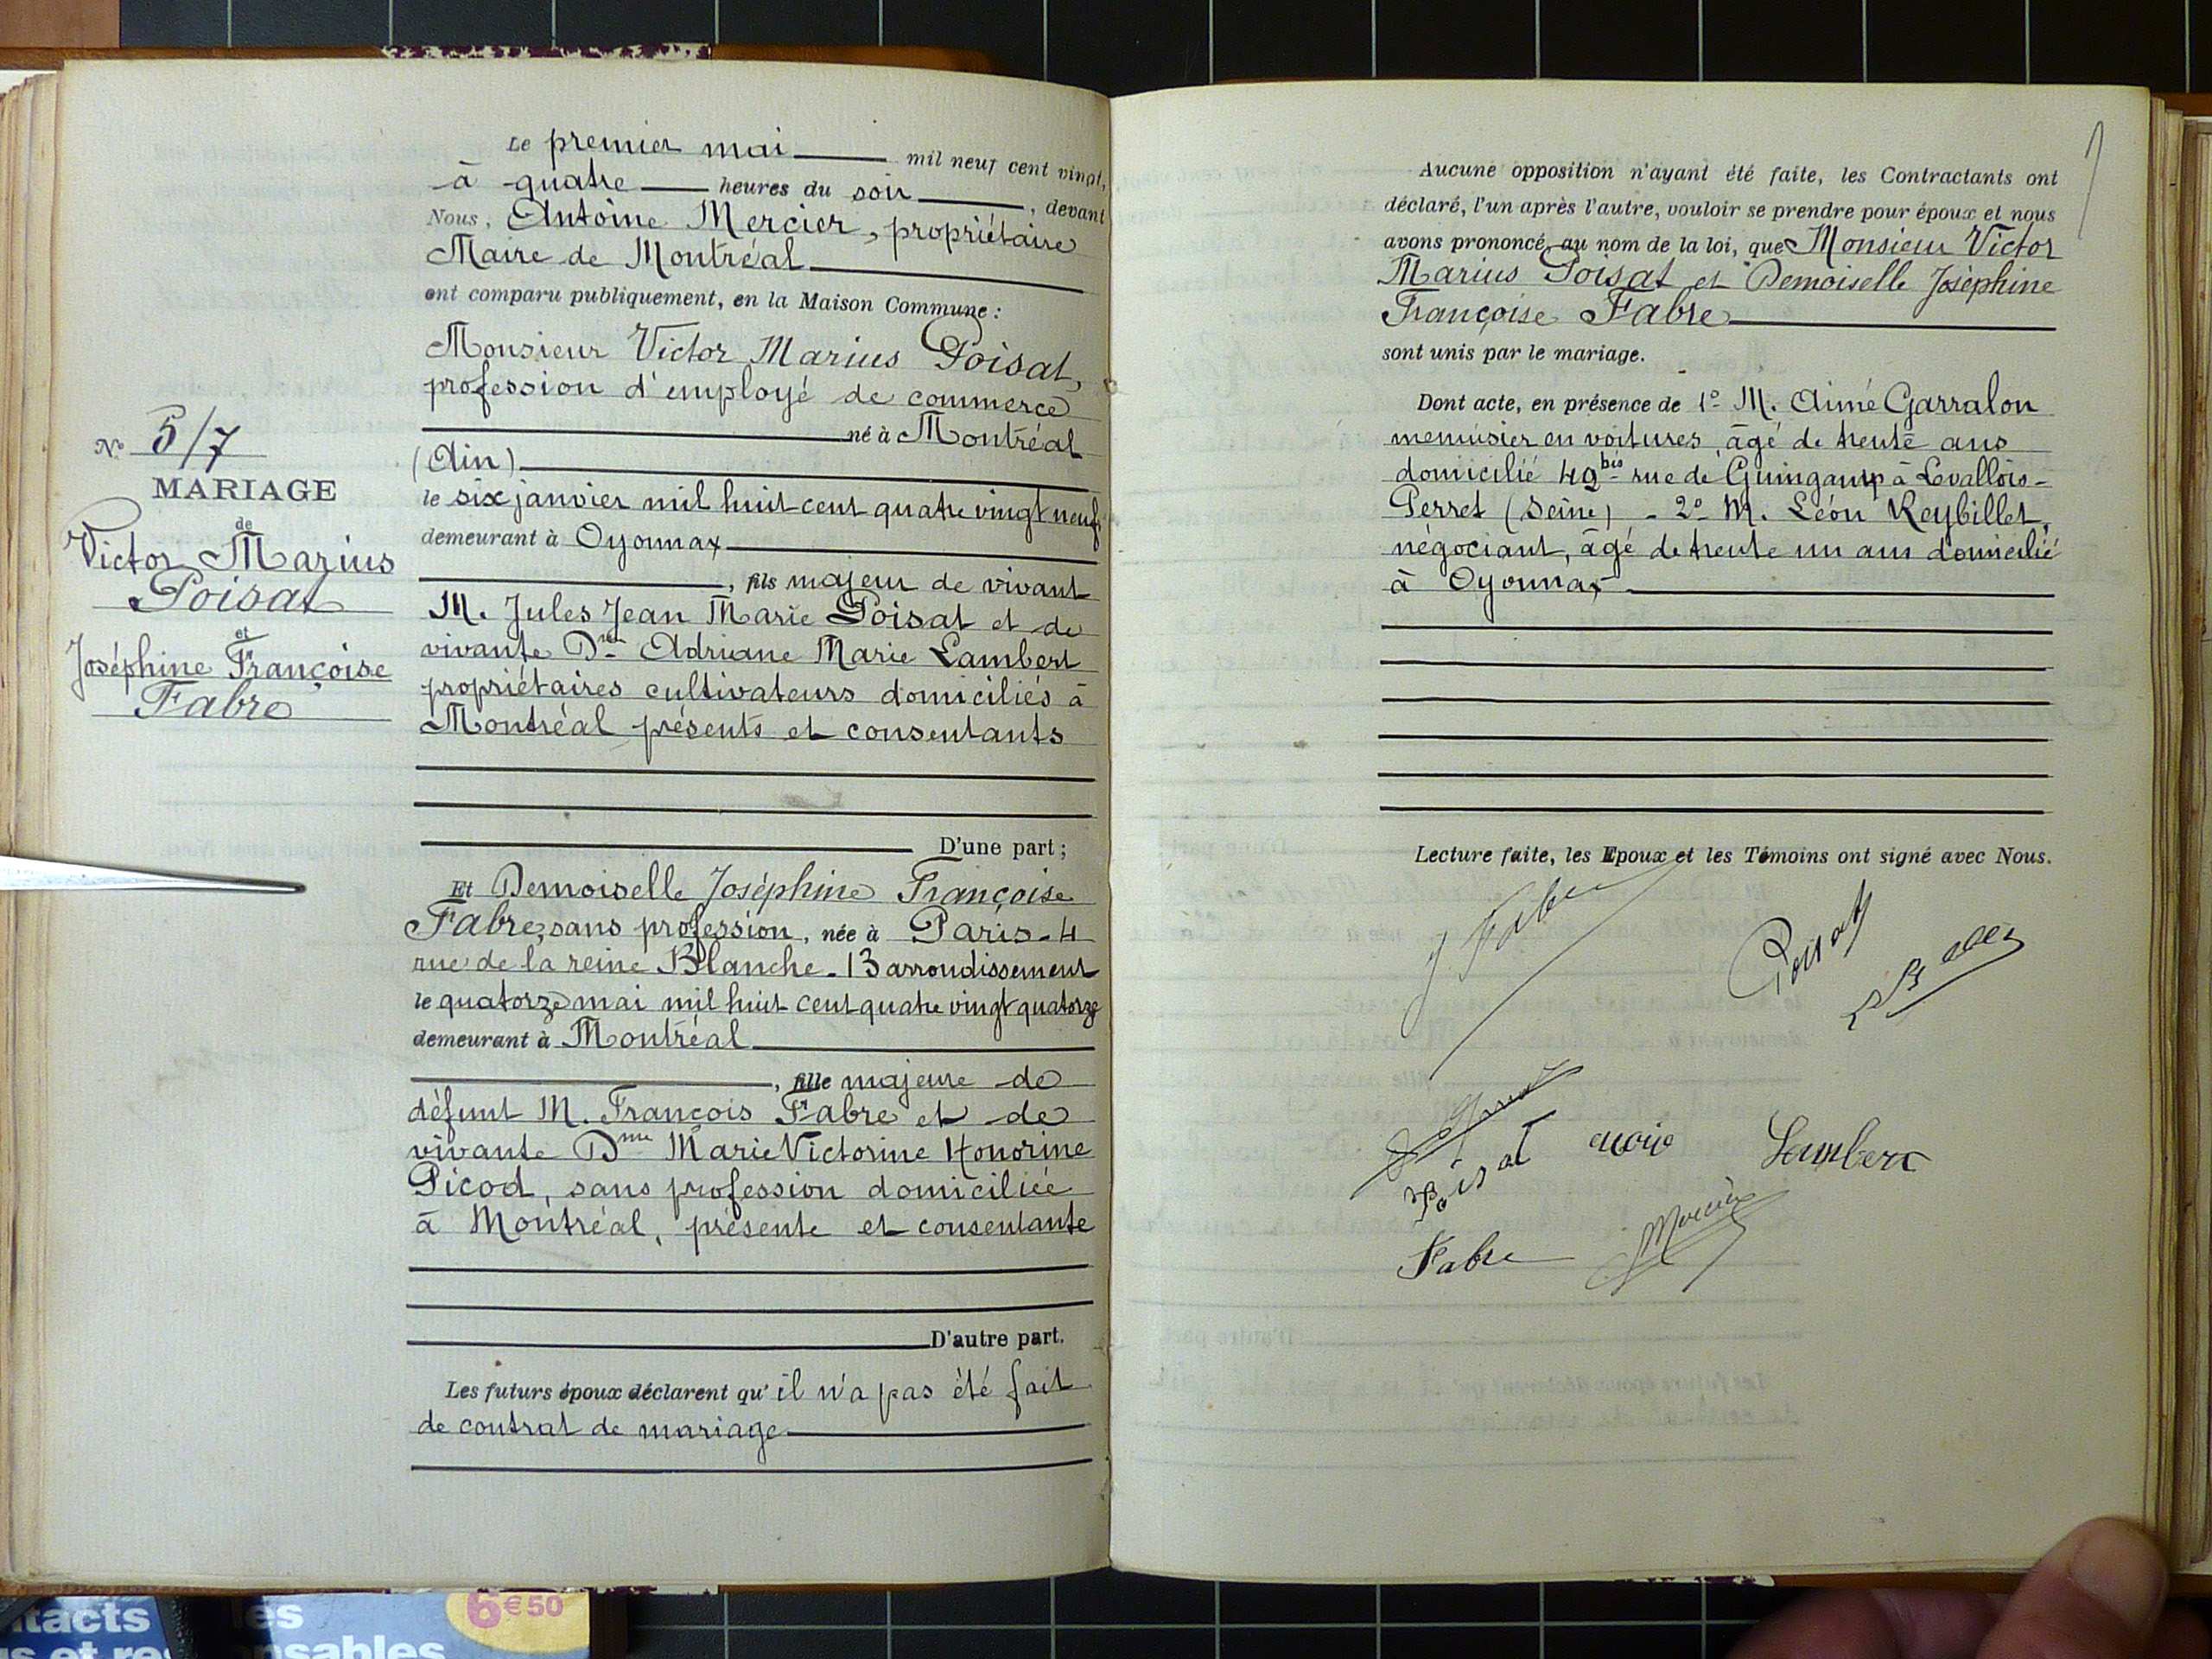 N° 5/7
MARIAGE
de
Victor Marius
Poisat
et
Joséphine Françoise
Fabre
Le premier mai mil neuf cent vingt,
à quatre heures du soir, devant
Nous, Antoine Mercier, propriétaire
Maire de Montréal
ont comparu publiquement, en la Maison Commune :
Monsieur Victor Marius Poisat,
profession d'employé de commerce
né à Montréal
(Ain)
le six janvier mil huit cent quatre vingt neuf,
demeurant à Oyonnax
, fils majeur de vivant
M. Jules Jean Marie Poisat et de
vivante Dme Adriane Marie Lambert
propriétaires cultivateurs domiciliés à
Montréal présents et consentants
D'une part ;
Et Demoiselle Joséphine Françoise
Fabre, sans profession, née à Paris - 4
rue de la reine Blanche - 13 arrondissement
le quatorze mai mil huit cent quatre vingt quatorze
demeurant à Montréal
, fille majeure de
défunt M. François Fabre et de
vivante Dme Marie Victorine Honorine
Picod, sans profession domiciliée
à Montréal, présente et consentante
D'autre part.
Les futurs époux déclarent qu'il n'a pas été fait
de contrat de mariage
Aucune opposition n'ayant été faite, les Contractants ont
déclaré, l'un après l'autre, vouloir se prendre pour époux et nous
avons prononcé, au nom de la loi, que Monsieur Victor
Marius Poisat et Demoiselle Joséphine
Françoise Fabre
sont unis par le mariage.
Dont acte, en présence de 1° M. Aimé Garralon
menuisier en voitures, âgé de trente ans
domicilié 49bis rue de Guingamp à Levallois-
Perret (Seine) - 2° M. Léon Reybillet,
négociant, âgé de trente un ans domicilié
à Oyonnax
Lecture faite, les Epoux et les Témoins ont signé avec Nous.
J Fabre
Poisat
Poisat
Lambert
Fabre
Mercier
6€50
tacts
es
s et re
nsables